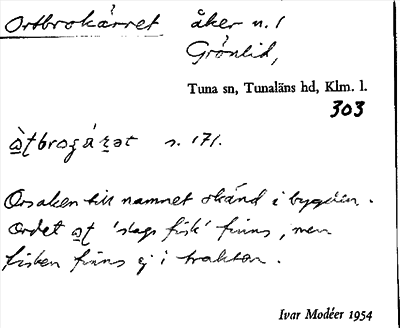 Ortbrokärret åker n. 1
Grönlid,
Tuna sn, Tunaläns hd, Klm. l.
303
s. 171.
Orsaken till namnet okänd i bygden.
Ordet a̱ṭ 'slags fisk' finns, men
fisken finns ej i trakten.
Ivar Modéer 1954